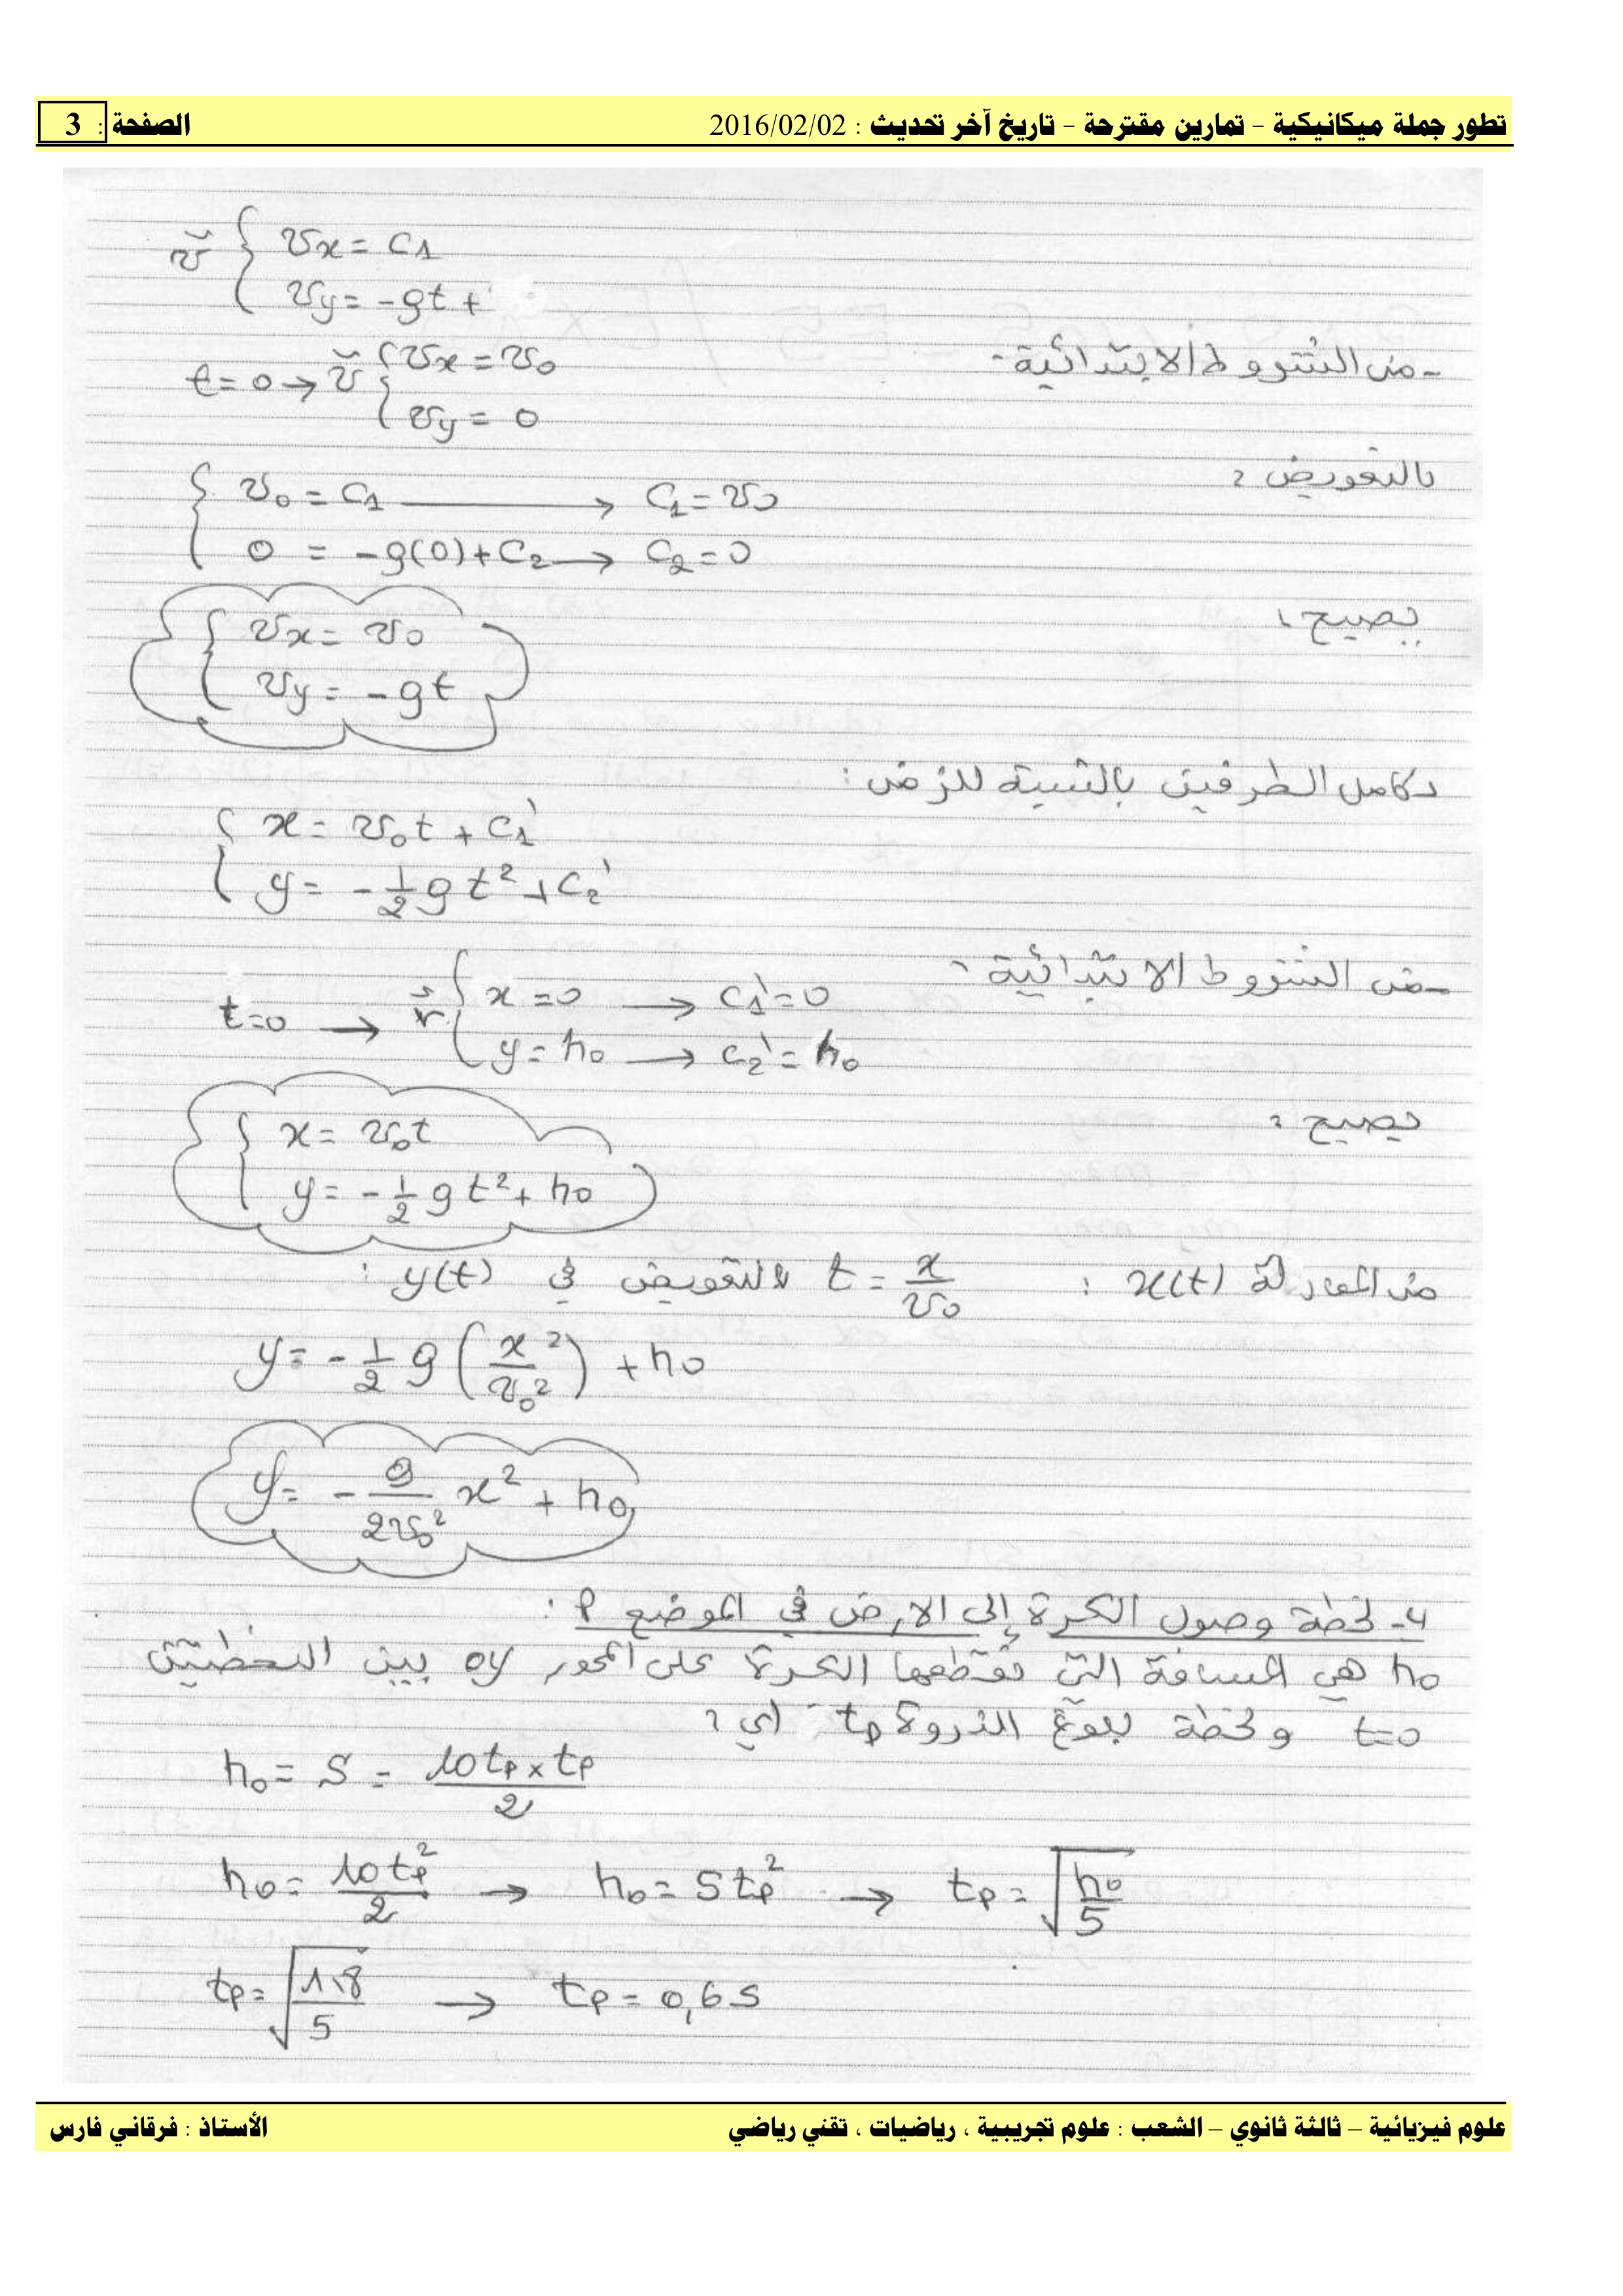 تطور جملة ميكانيكية – تمارين مقترحة – تاريخ آخر تحديث : 2016/02/02 الصفحة : 3
v⃗ { vx = c1
vy = -gt +
- من الشروط الابتدائية :
t = 0 → v⃗ { vx = v0
vy = 0
بالتعويض :
{ v0 = c1 → c1 = v0
0 = -g(0) + c2 → c2 = 0
يصبح :
{ vx = v0
vy = -gt
نكامل الطرفين بالنسبة للزمن :
{ x = v0t + c1'
y = -1/2 g t² + c2'
- من الشروط الابتدائية :
t=0 → r⃗ { x = 0 → c1' = 0
y = h0 → c2' = h0
يصبح :
{ x = v0t
y = -1/2 g t² + h0
من المعادلة x(t) : t = x/v0 بالتعويض في y(t) :
y = -1/2 g (x²/v0²) + h0
y = - g/2v0² x² + h0
4- لحظة وصول الكرة إلى الارض في الموضع P :
h0 هي المسافة التي تقطعها الكرة على المحور oy بين اللحظتين
t=0 ولحظة بلوغ الذروة tp أي :
h0 = S = 10tp × tp / 2
h0 = 10tp²/2 → h0 = 5tp² → tp = √(h0/5)
tp = √(1,8/5) → tp = 0,6 s
علوم فيزيائية – ثالثة ثانوي – الشعب : علوم تجريبية ، رياضيات ، تقني رياضي الأستاذ : فرقاني فارس